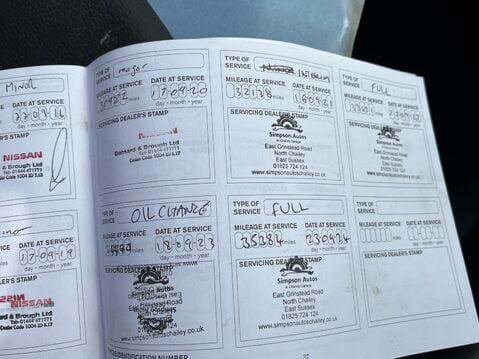 MINOR
DATE AT SERVICE
220916
day - month - year
NISSAN
& Brough Ltd
Tel: 01444 471771
DATE AT SERVICE
170919
day - month - year
NISSAN
ard & Brough Ltd
TYPE OF
SERVICE
major
MILEAGE AT SERVICE
miles
DATE AT SERVICE
170920
day - month - year
SERVICING DEALER'S STAMP
NISSAN
Barnard & Brough Ltd
Tel: 01444 471771
TYPE OF
SERVICE
INTERIM
MILEAGE AT SERVICE
32138
miles
DATE AT SERVICE
160921
day - month - year
SERVICING DEALER'S STAMP
Simpson Autos
at Chailey Garage
East Grinstead Road
North Chailey
East Sussex
01825 724 124
www.simpsonautoschailey.co.uk
TYPE OF
SERVICE
FULL
MILEAGE AT SERVICE
miles
DATE AT SERVICE
day - month - year
SERVICING DEALER'S STAMP
Simpson Autos
at Chailey Garage
East Grinstead Road
North Chailey
East Sussex
01825 724 124
www.simpsonautoschailey.co.uk
TYPE OF
SERVICE
OIL CHANGE
MILEAGE AT SERVICE
miles
DATE AT SERVICE
180923
day - month - year
SERVICING DEALER'S STAMP
Simpson Autos
TYPE OF
SERVICE
FULL
MILEAGE AT SERVICE
35384
miles
DATE AT SERVICE
230924
day - month - year
SERVICING DEALER'S STAMP
Simpson Autos
at Chailey Garage
East Grinstead Road
North Chailey
East Sussex
01825 724 124
www.simpsonautoschailey.co.uk
TYPE OF
SERVICE
MILEAGE AT SERVICE
miles
DATE AT SERVICE
day - month - year
SERVICING DEALER'S STAMP
VEHICLE IDENTIFICATION NUMBER